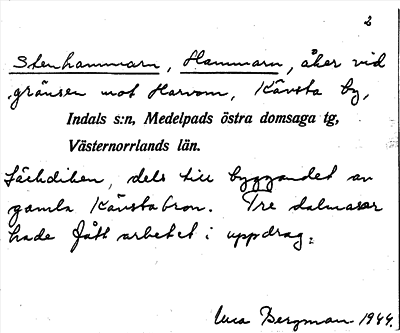 2
Stenhammarn, Hammarn, åker vid
gränsen mot Harvom, Kävsta by,
Indals s:n, Medelpads östra domsaga tg,
Västernorrlands län.
dels till byggandet av
gamla Kävstabron. Tre dalmasar
hade fått arbetet i uppdrag.
Bergman 1944.